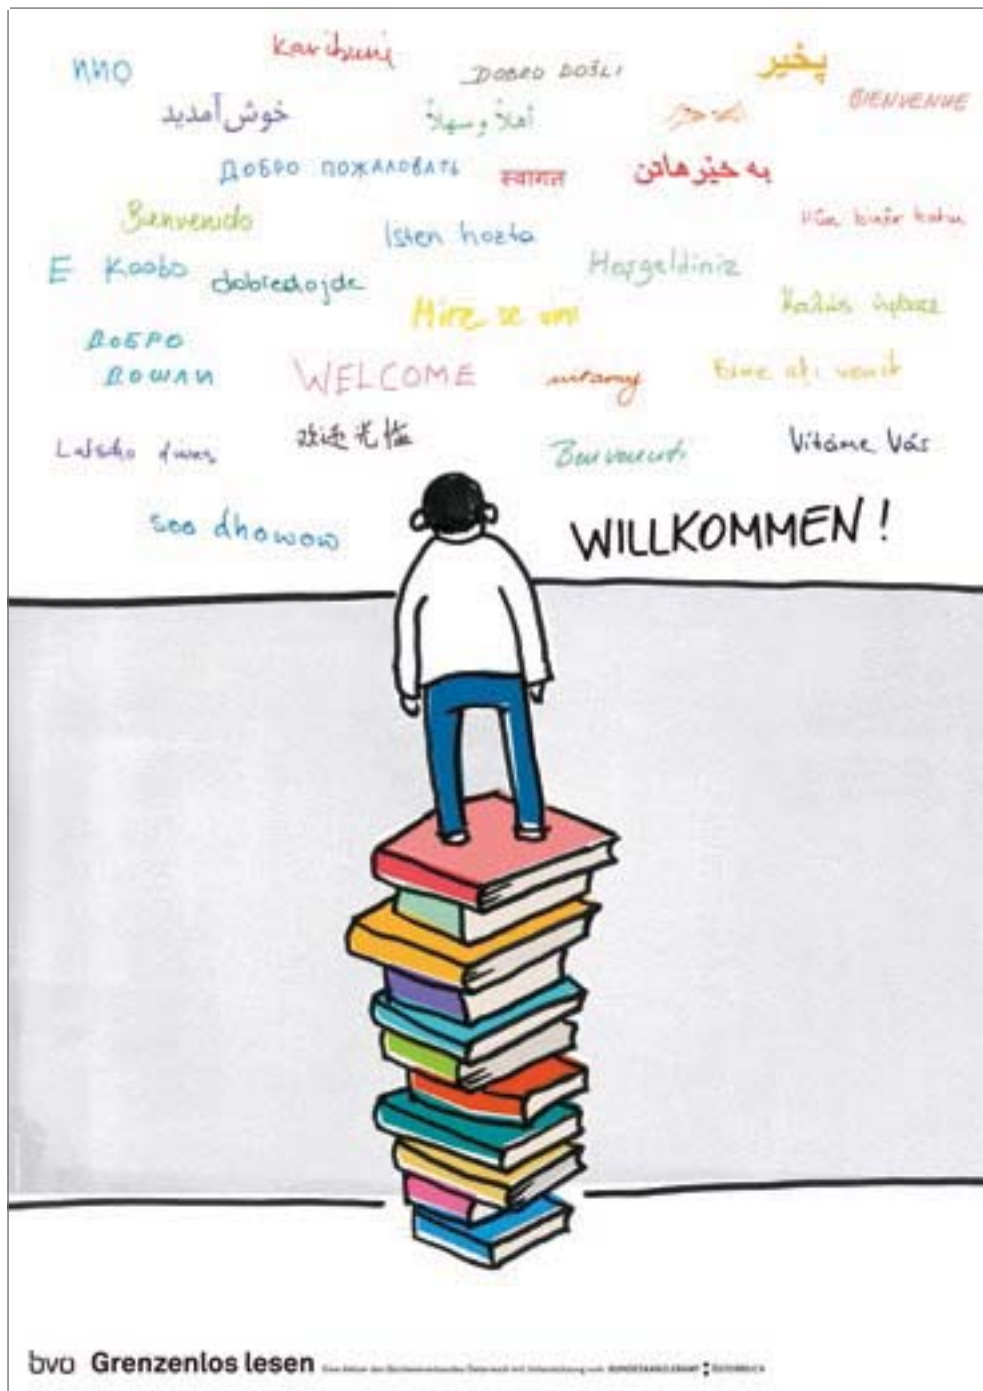 Karibuni
DOBRO DOŠLI
پخیر
BIENVENUE
خوش آمدید
أهلاً وسهلاً
ДОБРО ПОЖАЛОВАТЬ
स्वागत
به خێرهاتن
Bienvenido
Isten hozta
Hoşgeldiniz
E Koabo
dobredojde
Mire se vini
ДОБРО
ДОШЛИ
WELCOME
witamy
Bine aţi venit
欢迎光临
Benvenuti
Vítáme Vás
soo dhowow
WILLKOMMEN!
bvo Grenzenlos lesen